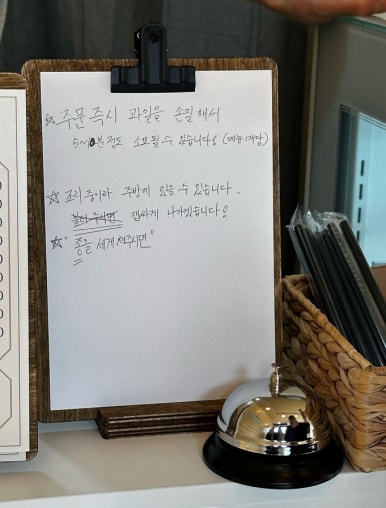 ☆주문 즉시 과일을 손질해서
5~10분 정도 소모될 수 있습니다! (메뉴 1개당)
☆ 조리 중이라 주방에 있을 수 있습니다..
불러 주시면 잽싸게 나가겠습니다!
☆ "종을 세게 쳐주시면"